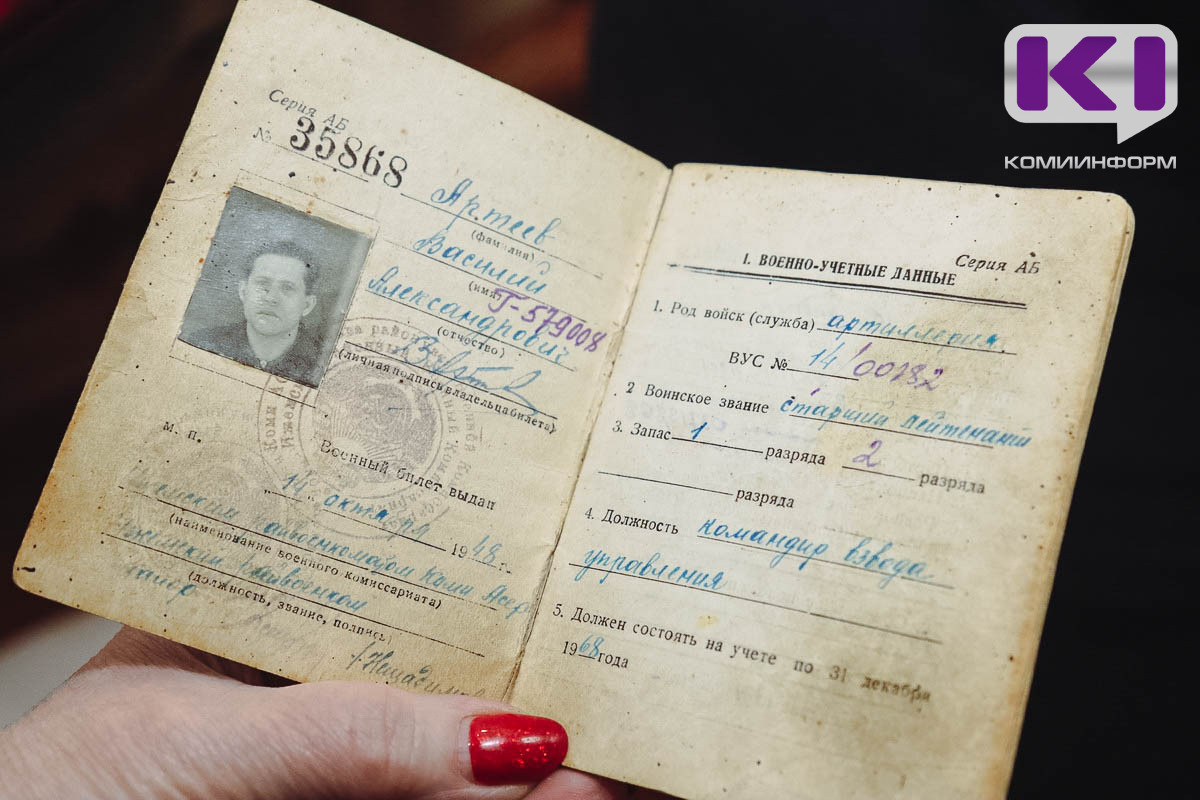 Серия АБ
№ 35868
Артеев
(фамилия)
Василий
(имя)
Г-579008
Александрович
(отчество)
(личная подпись владельца билета)
м. п.
Военный билет выдан
„14„ октября 1948 г.
Ижемским райвоенкоматом Коми Асср
(наименование военного комиссариата)
Ижемский райвоенком
(должность, звание, подпись)
майор
Серия АБ
I. ВОЕННО-УЧЕТНЫЕ ДАННЫЕ
1. Род войск (служба) артиллерия.
ВУС № 14/00282
2 Воинское звание старший лейтенант
3. Запас 1 разряда 2 разряда
разряда
4. Должность командир взвода
управления
5. Должен состоять на учете по 31 декабря
1968 года
KI
КОМИИНФОРМ